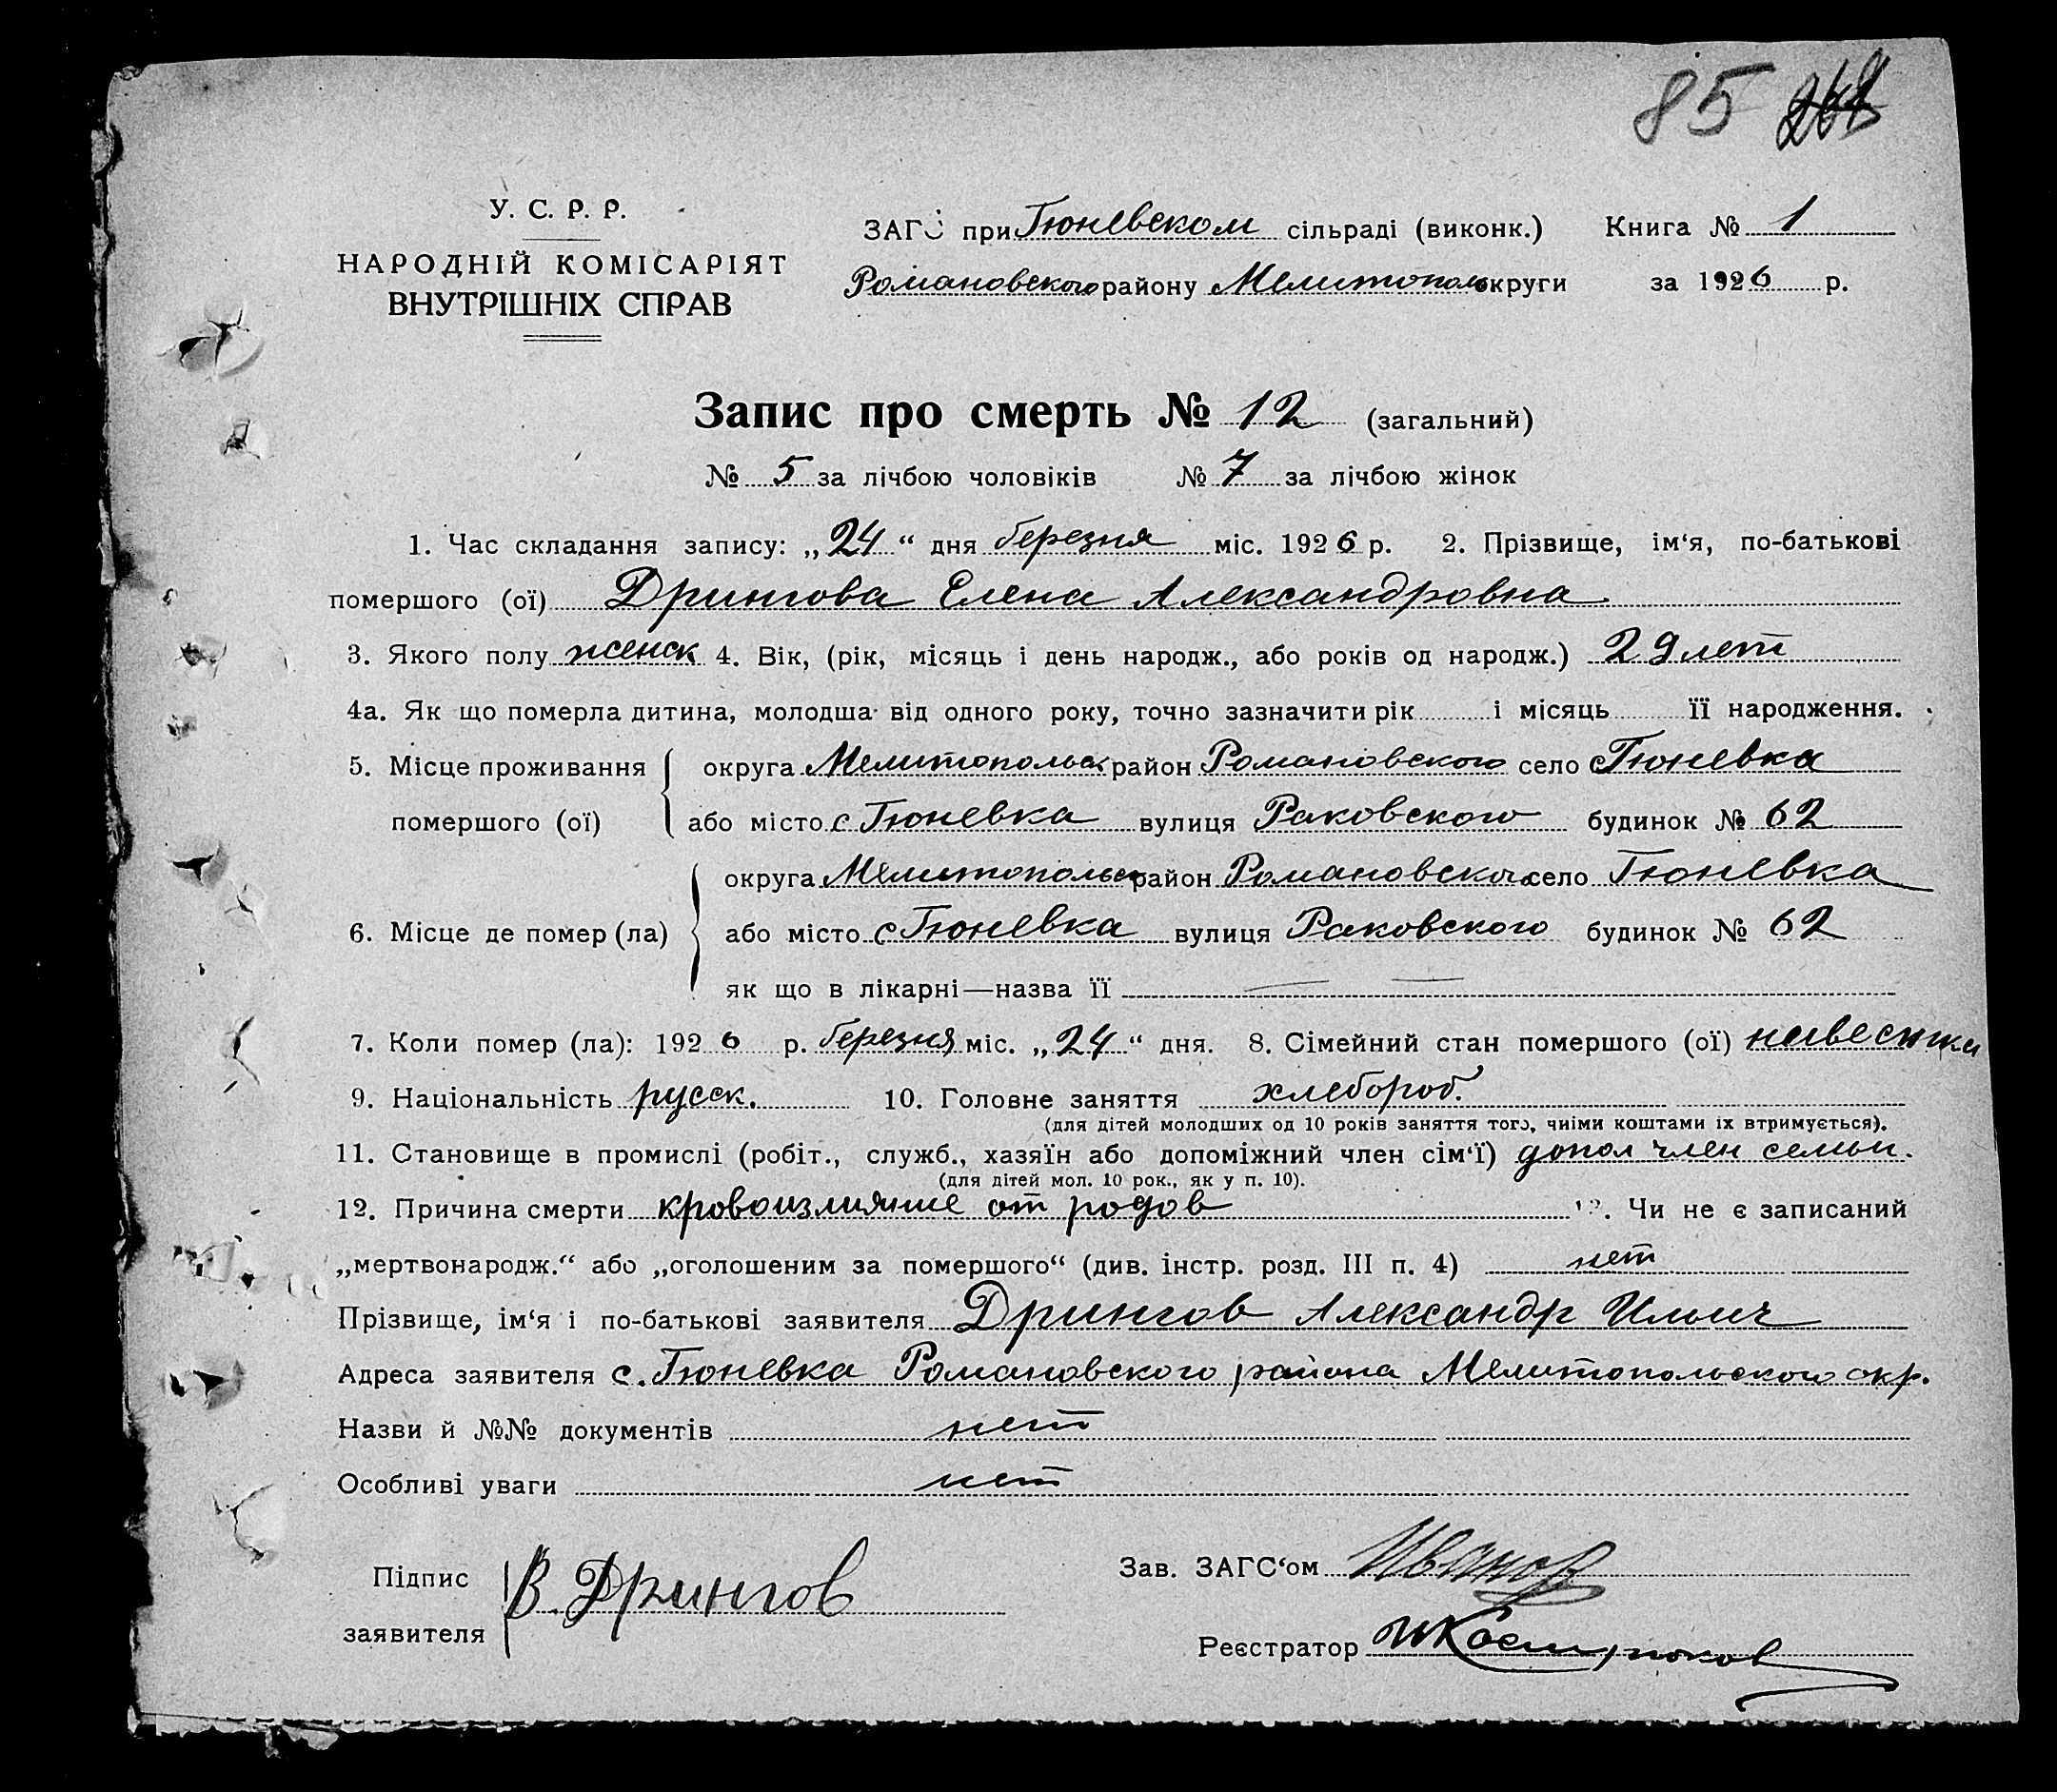 85 268
У. С. Р. Р.
НАРОДНІЙ КОМІСАРІЯТ
ВНУТРІШНІХ СПРАВ
ЗАГС при Гюневском сільраді (виконк.) Книга № 1
Романовского району Мелитопол округи за 1926 р.
Запис про смерть № 12 (загальний)
№ 5 за лічбою чоловіків № 7 за лічбою жінок
1. Час складання запису: „24“ дня березня міс. 1926 р. 2. Прізвище, ім‘я, по-батькові
помершого (ої) Дрингова Елена Александровна
3. Якого полу женск 4. Вік, (рік, місяць і день народж., або років од народж.) 29 лет
4а. Як що померла дитина, молодша від одного року, точно зазначити рік і місяць її народження.
5. Місце проживання помершого (ої) округа Мелитопольск район Романовского село Гюневка
або місто с Гюневка вулиця Раковского будинок № 62
6. Місце де помер (ла) округа Мелитопольск район Романовского село Гюневка
або місто с Гюневка вулиця Раковского будинок № 62
як що в лікарні—назва її —
7. Коли помер (ла): 1926 р. березня міс. „24“ дня. 8. Сімейний стан помершого (ої) невестка
9. Національність русск. 10. Головне заняття хлебороб.
(для дітей молодших од 10 років заняття того, чиїми коштами їх втримується).
11. Становище в промислі (робіт., служб., хазяїн або допоміжний член сім‘ї) допол член семьи.
(для дітей мол. 10 рок., як у п. 10).
12. Причина смерти кровоизлияние от родов 13. Чи не є записаний
„мертвонародж.“ або „оголошеним за помершого“ (див. інстр. розд. III п. 4) нет
Прізвище, ім‘я і по-батькові заявителя Дрингов Александр Ильич
Адреса заявителя с. Гюневка Романовского района Мелитопольского окр.
Назви й №№ документів нет
Особливі уваги нет
Підпис заявителя В. Дрингов
Зав. ЗАГС‘ом Иванов
Реєстратор